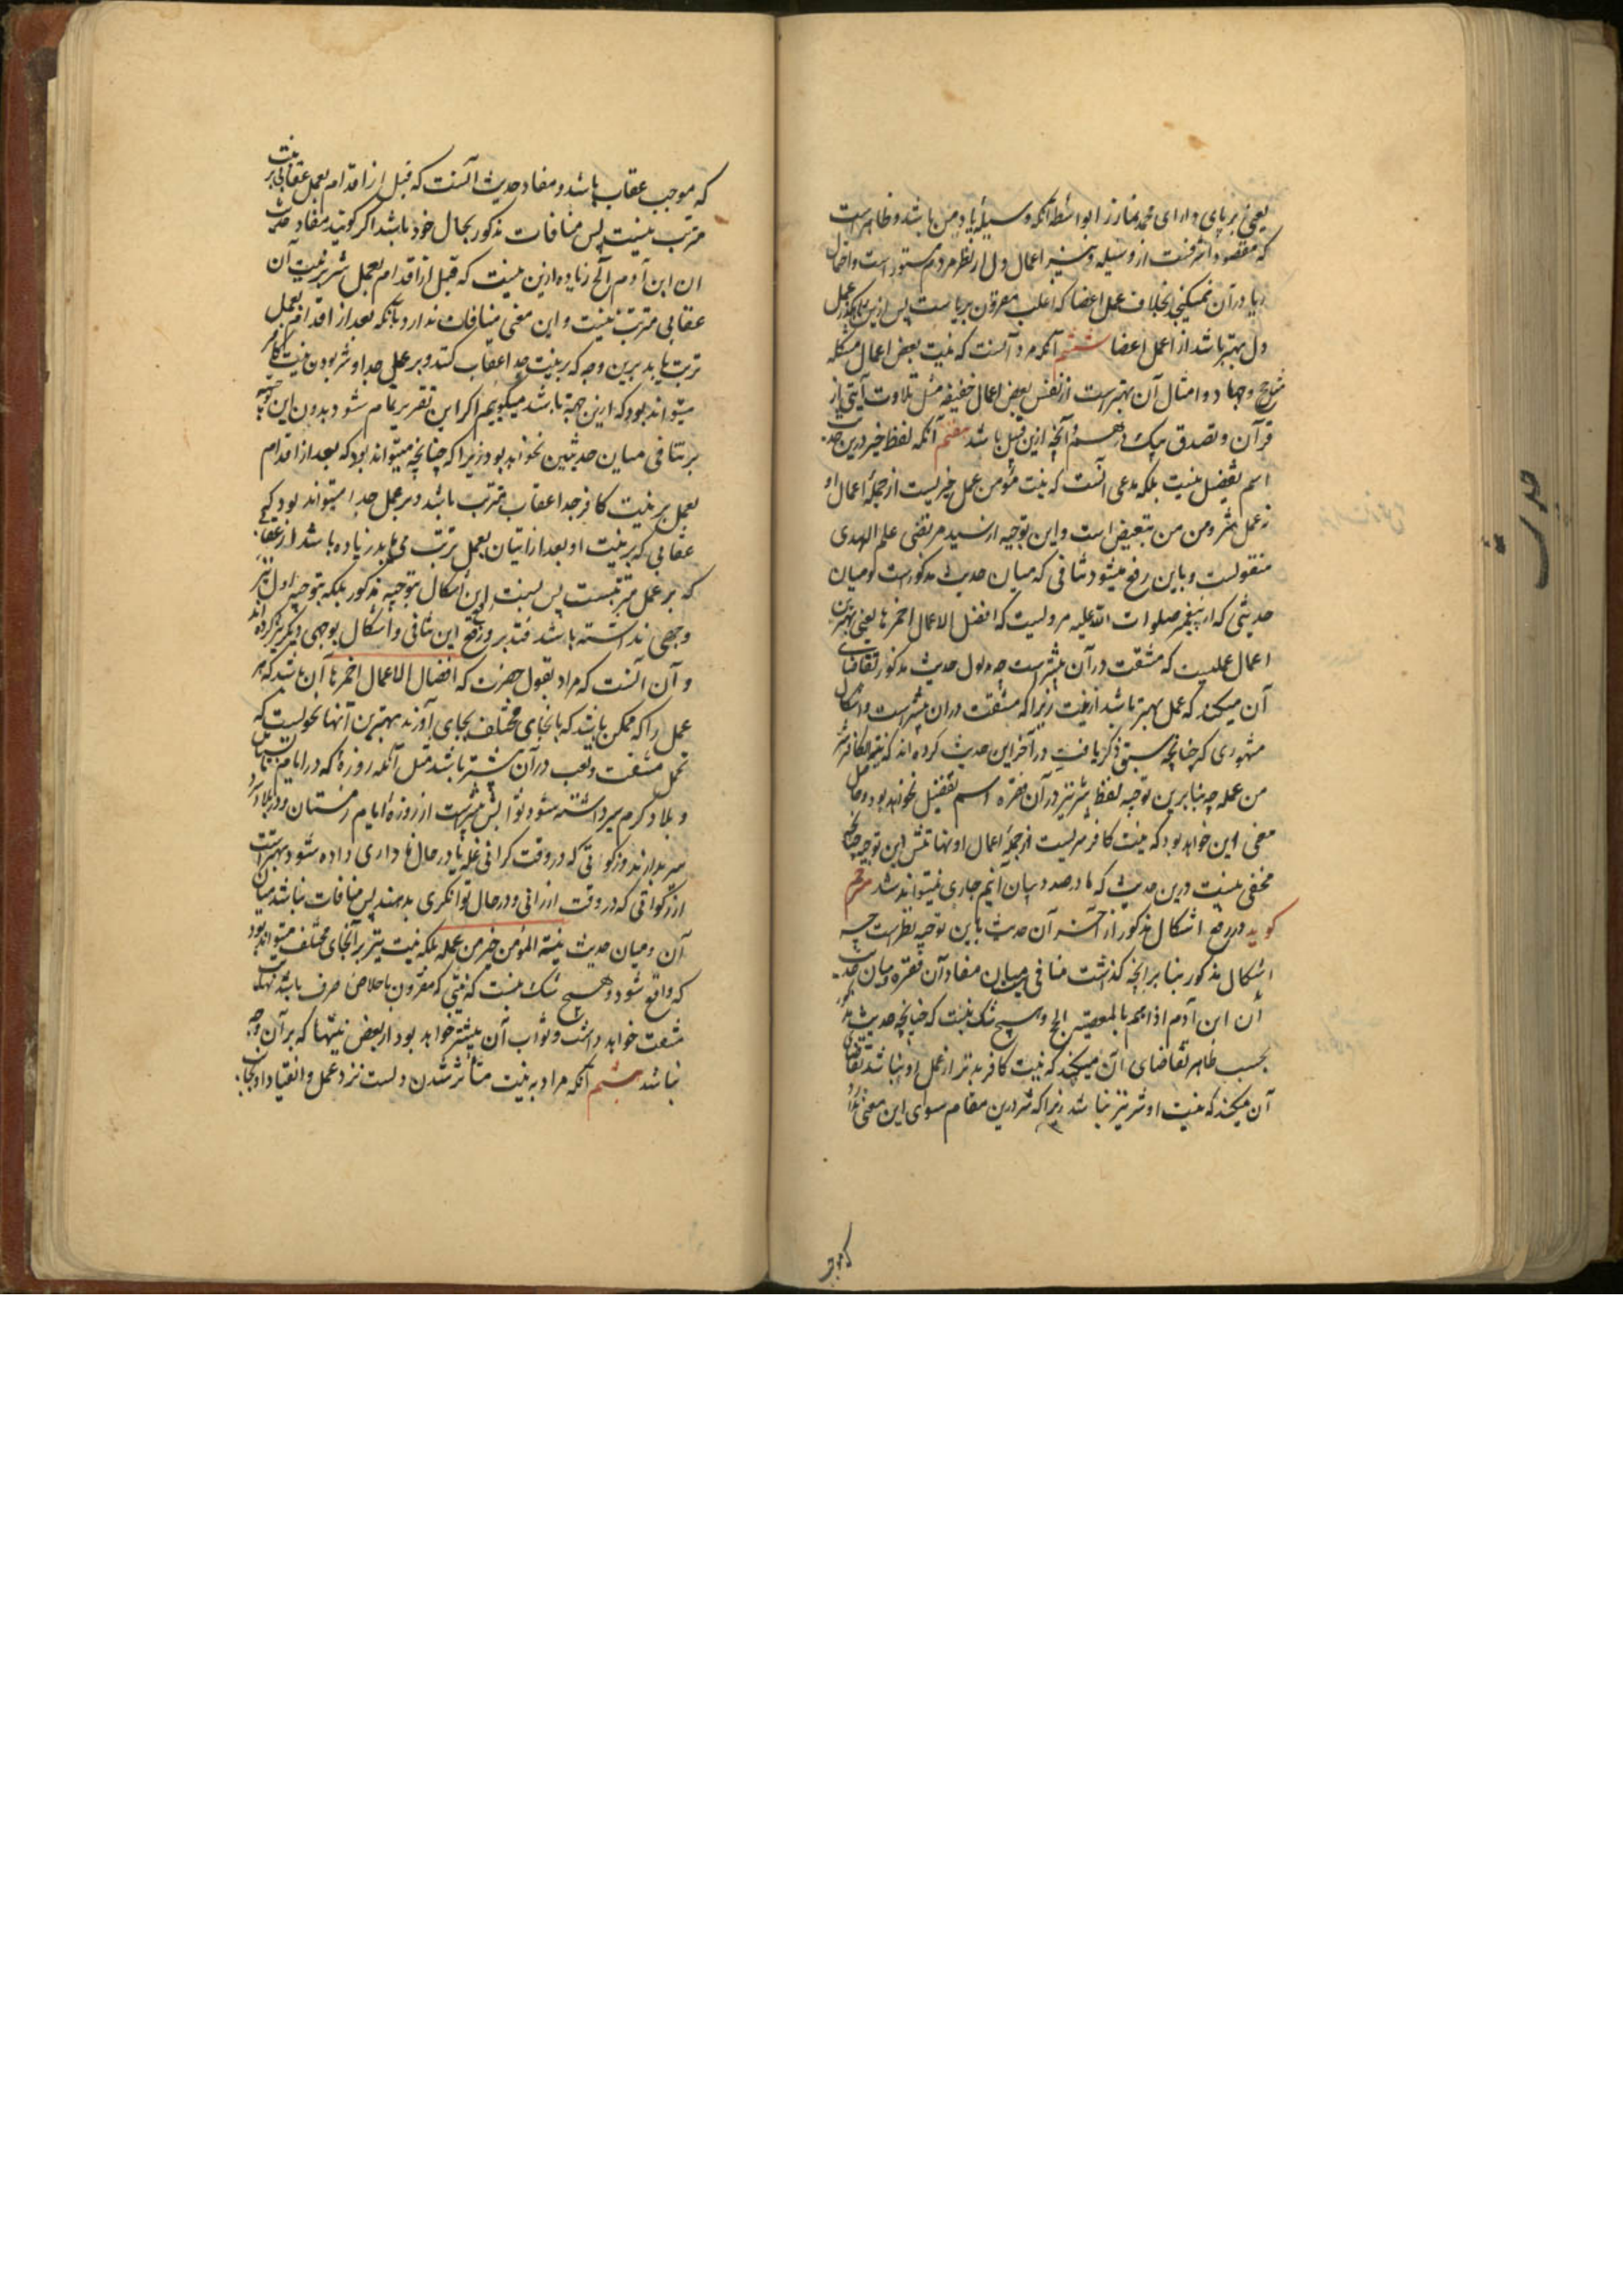 یعنی برپای دارای محمد نماز را بواسطه آنکه وسیله یاد من باشد و ظاهرست
که مقصود اشرفست از وسیله و نیز اعمال دل از نظر مردم مستور است و احتمال
ریا در آن نمیگنجد بخلاف عمل اعضا که اغلب مقرون بریاست پس ازین عمل
دل بهتر باشد از اعمال اعضا ششم آنکه مراد آنست که نیت بعض اعمال مشکله
مثل حج و جهاد و امثال آن بهترست از نفس بعض اعمال خفیفه مثل تلاوت آیتی از
قرآن و تصدق بیک درهم و آنچه ازین قبیل باشد هفتم آنکه لفظ خیر درین حدیث
اسم تفضیل نیست بلکه مدعی آنست که نیت مؤمن عمل خیریست از جمله اعمال او
نه عمل شر و من من تبعیض است و این توجیه از سید مرتضی علم الهدی
منقولست و باین رفع میشود تنافی که میان حدیث مذکورست و میان
حدیثی که از پیغمبر صلوات الله علیه مرویست که افضل الاعمال احمزها یعنی بهترین
اعمال عملیست که مشقت در آن بیشتر است چه مدلول حدیث مذکور تقاضای
آن میکند که عمل بهتر باشد از نیت زیرا که مشقت در آن بیشترست و اشکال
مشهوری که چنانچه سبق ذکر یافت در آخر این حدیث کرده اند که نیة الکافر شر
من عمله چه بنابرین توجیه لفظ شر نیز در آن فقره اسم تفضیل نخواهد بود و حاصل
معنی این خواهد بود که نیت کافر شریست از جمله اعمال او نهایتش این توجیه چنانچه
مخفی نیست درین حدیث که ما در صدد بیان آنیم جاری نمیتواند شد مترجم
کوید در رفع اشکال مذکور از آخر آن حدیث باین توجیه نظرست چه
اشکال مذکور بنا بر آنچه گذشت منافی میان مفاد آن فقره و میان حدیث
ان ابن آدم اذا هم بالمعصیة الخ و هیچ شک نیست که چنانچه حدیث مذکور
بحسب ظاهر تقاضای آن میکند که نیت کافر بدتر از عمل او نباشد تقاضای
آن میکند که نیت او شر نیز نباشد زیرا که شر درین مقام سوای این معنی ندارد
که موجب
که موجب عقاب باشد و مفاد حدیث آنست که قبل از اقدام بعمل عقابی بر نیت
مترتب نیست پس منافات مذکور بحال خود باشد اگر گویند مفاد حدیث
ان ابن آدم الخ زیاده ازین نیست که قبل از اقدام بعمل شر بر نیت آن
عقابی مترتب نیست و این معنی منافات ندارد بآنکه بعد از اقدام بعمل
ترتب یابد برین وجه که بر نیت جدا عقاب کنند و بر عمل جدا و شر بودن نیت کافر
میتواند بود که ازین جهت باشد میگوییم اگر این تقریر تمام شود بدون این توجیه
نیز تنافی میان حدیثین نخواهد بود زیرا که چنانچه میتواند بود که بعد از اقدام
بعمل بر نیت کافر جدا عقاب مترتب باشد و بر عمل جدا میتواند بود که
عقابی که بر نیت او بعد از اتیان بعمل ترتب می یابد زیاده باشد از عقابی
که بر عمل مترتبست پس نسبت این اشکال بتوجیه مذکور بلکه بتوجیه اول نیز
وجهی نداشته باشد فتدبر و رفع این تنافی و اشکال بوجهی دیگر نیز کرده اند
و آن آنست که مراد بقول حضرت که افضل الاعمال احمزها آن باشد که هر
عمل را که ممکن باشد که بانحای مختلف بجای آورند بهترین آنها نحویست که
تحمل مشقت و تعب در آن بیشتر باشد مثل آنکه روزه که در ایام تابستان
و بلاد گرم میر داشته شود ثوابش بیشترست از روزه ایام زمستان و در بلاد سرد
میر ندارند و زکواتی که در وقت گرانی غله یا در حال ناداری داده شود بهترست
از زکواتی که در وقت ارزانی و در حال توانگری بدهند پس منافات نباشد میان
آن و میان حدیث نیة المؤمن خیر من عمله بلکه نیت نیز بر انحای مختلف میتواند بود
که واقع شود و هیچ شک نیست که نیتی که مقرون باخلاص صرف باشد
مشقت خواهد داشت و ثواب آن بیشتر خواهد بود از بعض نیتها که بر آن وجه
نباشد هشتم آنکه مراد به نیت متأثر شدن دلست نزد عمل و انقیاد او بجانب
حدیث